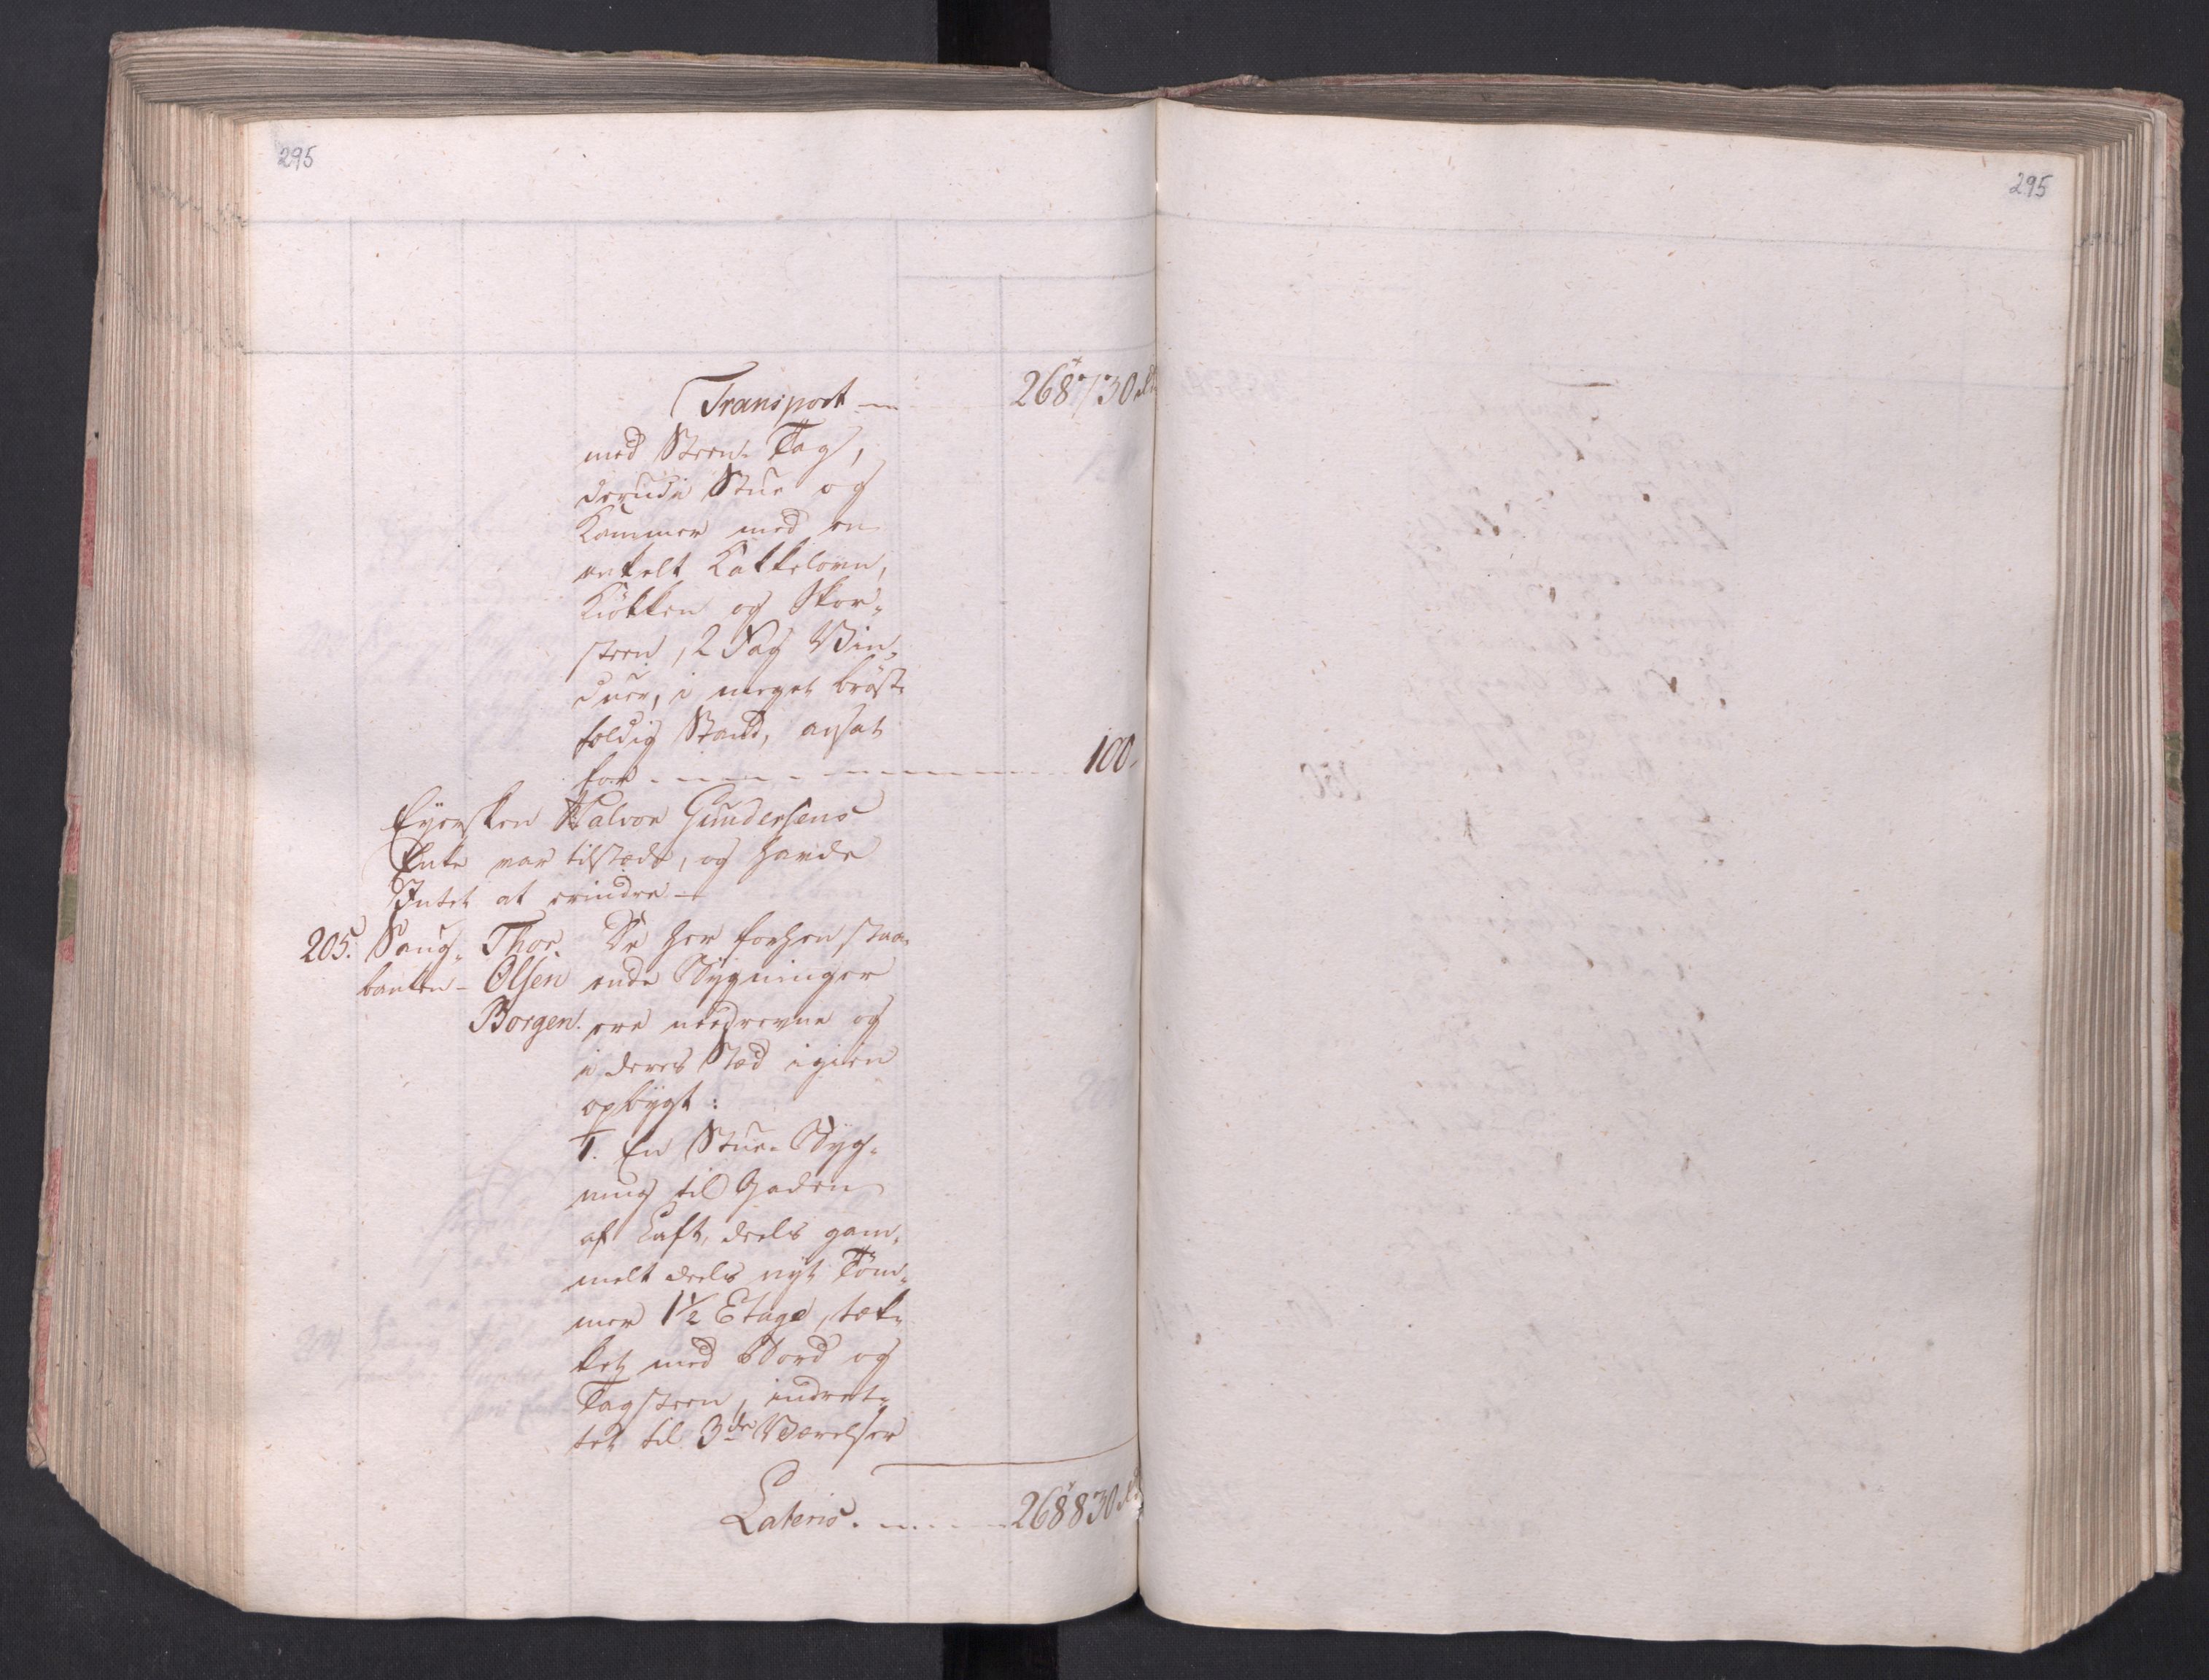 295
295
Transport 268730 rd
med Steen Tag,
derudi Stue og
Kammer med en
enkelt Kakkelovn,
Kiökken og Skor-
steen, 2 Fag Vin-
duer, i meget bröst-
foldig Stand, ansat
for 100.
Eyersken Halvor Gundersens
Enke var tilstæde, og havde
Intet at erindre
205. Saug- Thor De her forhen staa-
banken Olsen ende Bygninger
Borgen. ere needrevne og
i deres Stæd igien
opbygt:
1. En Stue Byg-
ning til Gaden
af Laft, deels gam-
melt deels nyt Töm-
mer 1 1/2 Etage, tæk-
ket med Bord og
Tagsteen, indret-
tet til 3de Værelser
Lateris 268830 rd